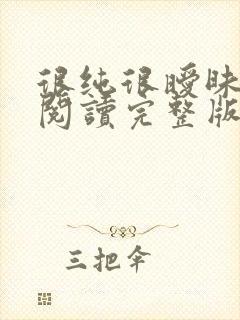 很纯很曖昧
閱讀完整版
三把伞